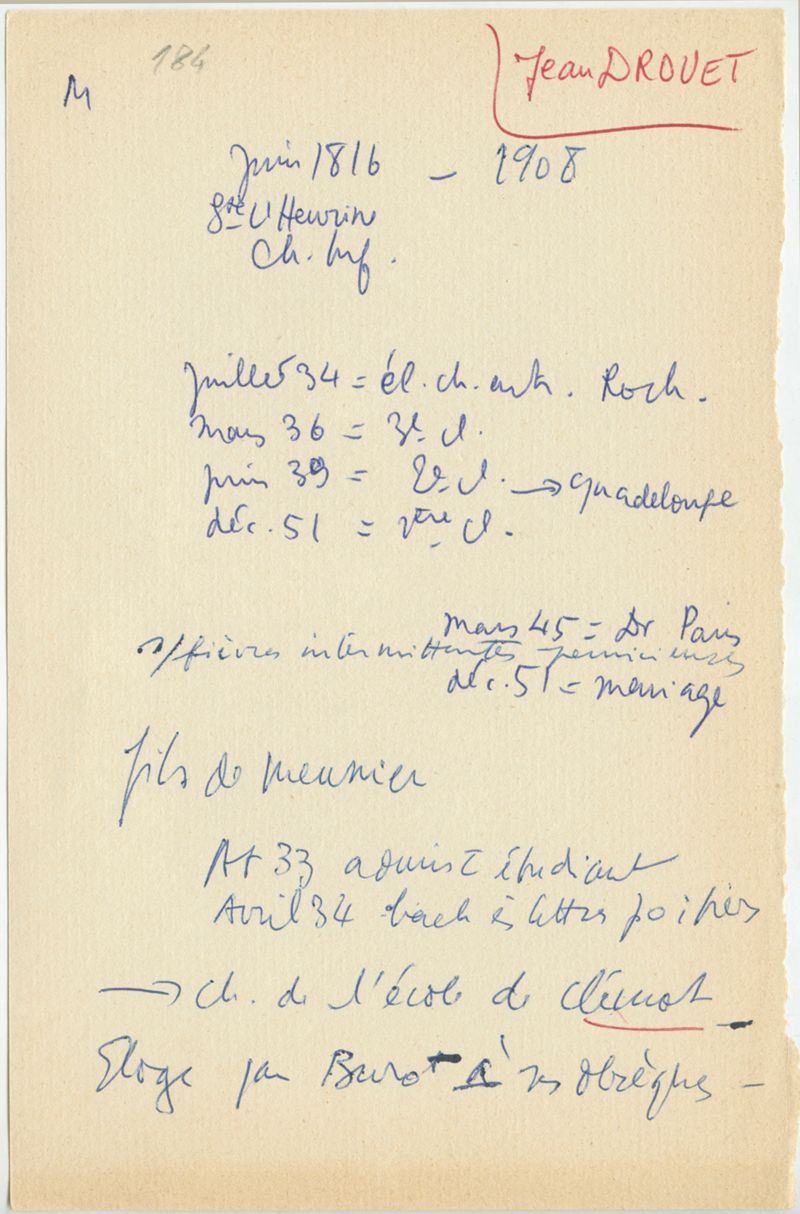 184
M
Jean DROUET
juin 1816 – 1908
Ste L'Heurine
Ch. Inf.
Juillet 34 = él. ch. ent. Roch.
mars 36 = 3e cl.
juin 39 = 2e cl. → Guadeloupe
déc. 51 = 1ère cl.
mars 45 = Dr Paris
s/fièvres intermittentes pernicieuses
déc. 51 = mariage
fils de meunier
At 33 admis étudiant
Avril 34 bach ès lettres poitiers
→ ch. de l'école de Clémot –
Eloge par Barot à ses obsèques –